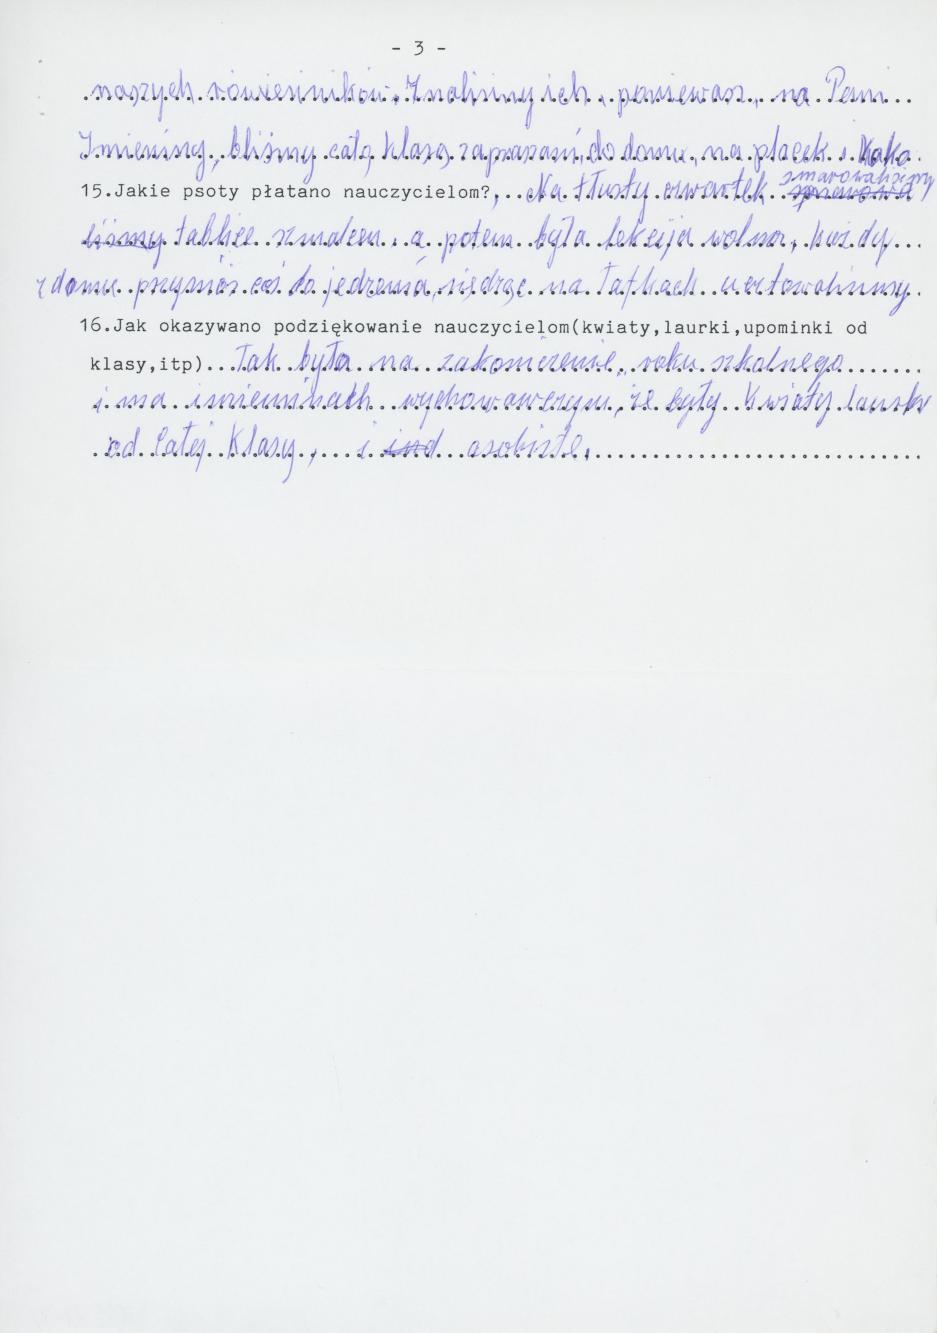 - 3 -
naszych rówieśników. Znaliśmy ich, ponieważ, na Pani
Imieniny, bliśmy całą klasą zapraszani, do domu, na placek i kako
15.Jakie psoty płatano nauczycielom?, Na tłusty czwartek smarowaliśmy
liśmy tablice szmalcem, a potem była lekcja wolna, każdy
z domu przyniós coś do jedzenia, siedząc na ławkach ucztowaliśmy.
16.Jak okazywano podziękowanie nauczycielom(kwiaty,laurki,upominki od
klasy,itp)...Tak było na zakończenie, roku szkolnego
i na imieninach wychowawczyni, że były kwiaty laurki
od całej klasy, i ind osobiste.